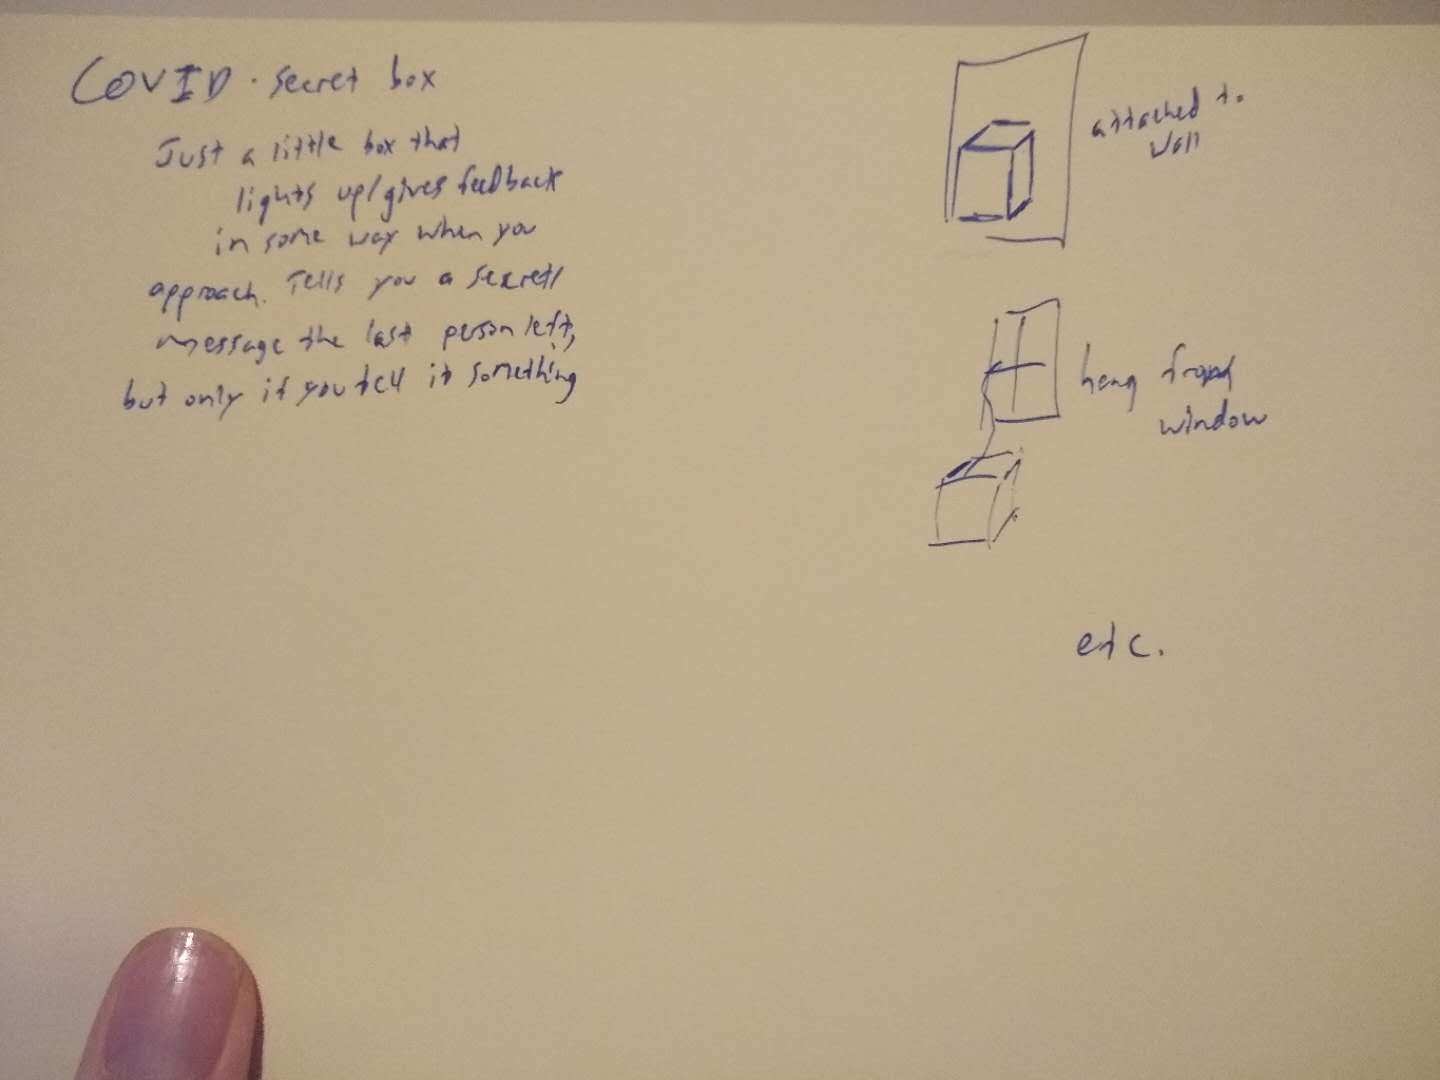 COVID · secret box
Just a little box that
lights up/gives feedback
in some way when you
approach. Tells you a secret/
message the last person left,
but only if you tell it something
attached to
wall
hang from
window
etc.